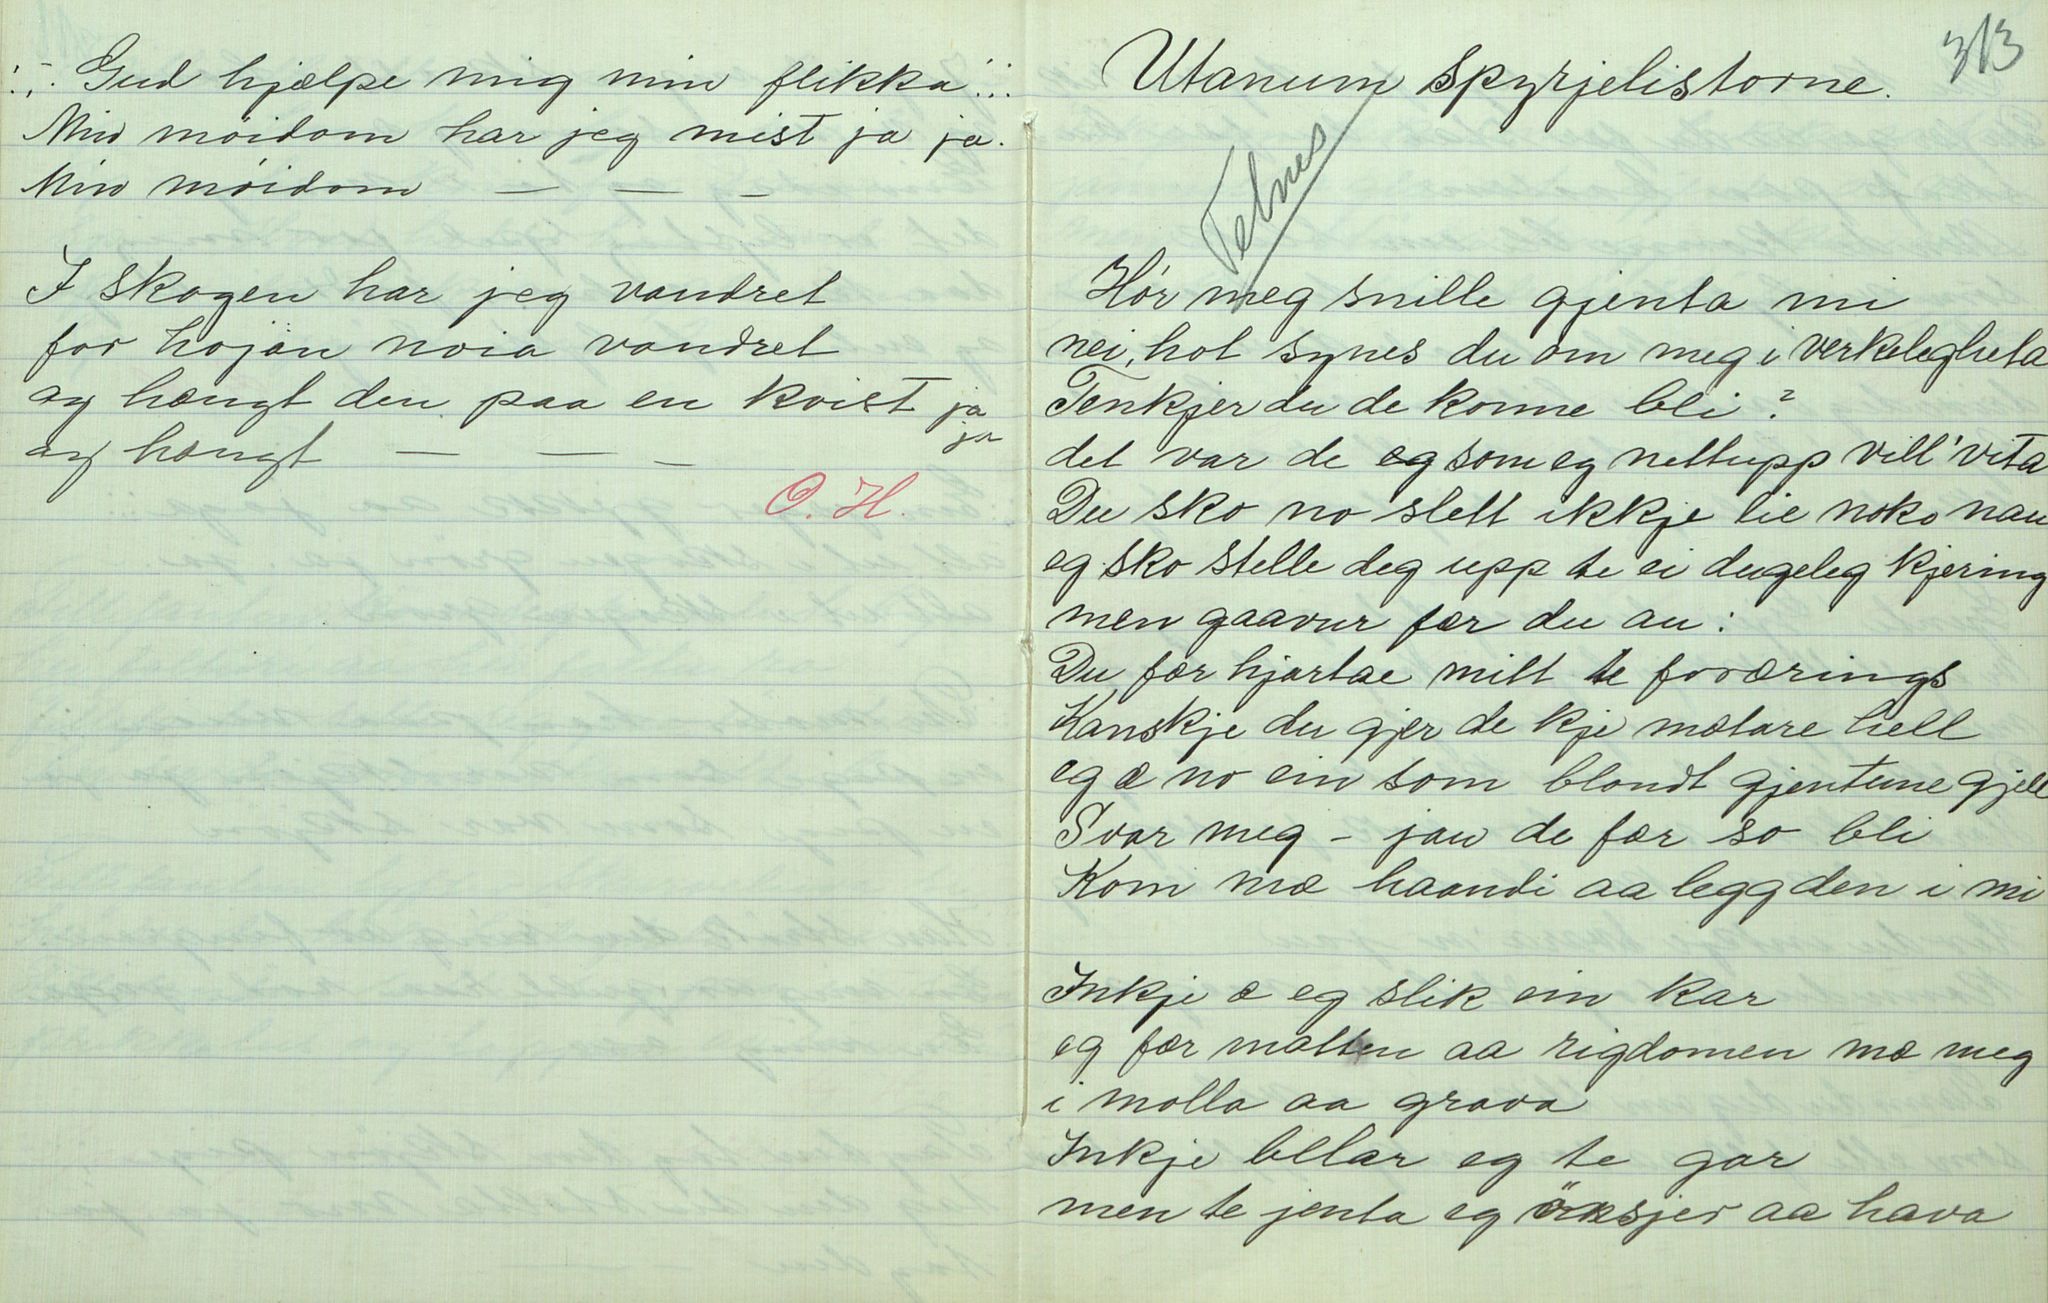 :,: Gud hjælpe mig min flikka :,:
Min møidom har jeg mist ja ja.
Min møidom — — —
I skogen har jeg vandret
for hojan noia vandret
og hængt den paa en kvist ja
ja
og hængt — — —
O. H.
313
Utanum spyrjelistorne.
Felnes
Hør meg snille gjenta mi
nei, hot synes du om meg i verkelegheta
Tenkjer du de konne bli?
det var de eg som eg nettupp vill' vita
Du sko no slett ikkje lie noko nau
eg sko stelle deg upp te ei dugeleg kjering
men gaavur fær du au:
Du fær hjartae mitt te foræring
Kanskje du gjer de kje mætare hell
eg æ no ein som blondt gjentune gjell
Svar meg – jau de fær so bli
Kom mæ haandi aa legg den i mi
Inkje æ eg slik ein kar
eg fær matten aa rigdomen mæ meg
i molla aa grava
Inkje belar eg te gar
men te jenta eg önsjer aa hava